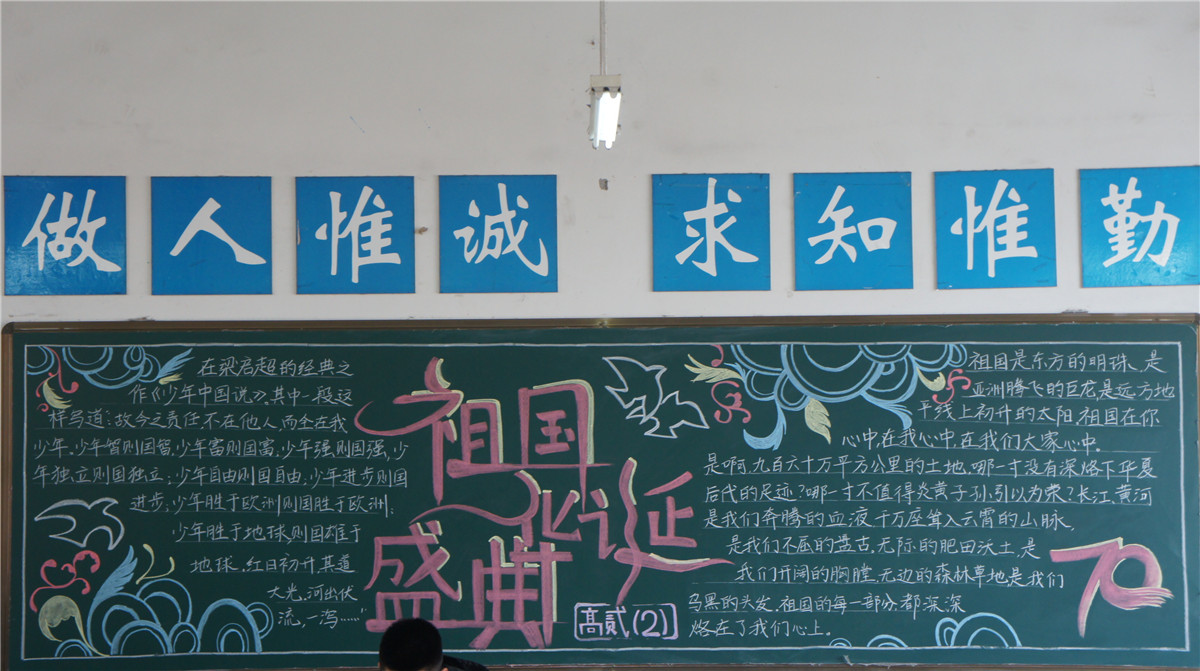 做人惟诚 求知惟勤
在梁启超的经典之
作《少年中国说》,其中一段这
样写道:故今之责任不在他人,而全在我
少年.少年智则国智,少年富则国富,少年强则国强,少
年独立则国独立;少年自由则国自由;少年进步则国
进步;少年胜于欧洲则国胜于欧洲;
少年胜于地球,则国雄于
地球.红日初升,其道
大光,河出伏
流,一泻……
祖国
华诞
盛典
高贰(2)
祖国是东方的明珠、是
亚洲腾飞的巨龙是远方地
平线上初升的太阳.祖国在你
心中,在我心中,在我们大家心中.
是啊,九百六十万平方公里的土地,哪一寸没有深烙下华夏
后代的足迹?哪一寸不值得炎黄子孙引以为荣?长江、黄河
是我们奔腾的血液,千万座耸入云霄的山脉,
是我们不屈的盘古.无际的肥田沃土,是
我们开阔的胸膛,无边的森林草地是我们
乌黑的头发.祖国的每一部分,都深深
烙在了我们心上。
70